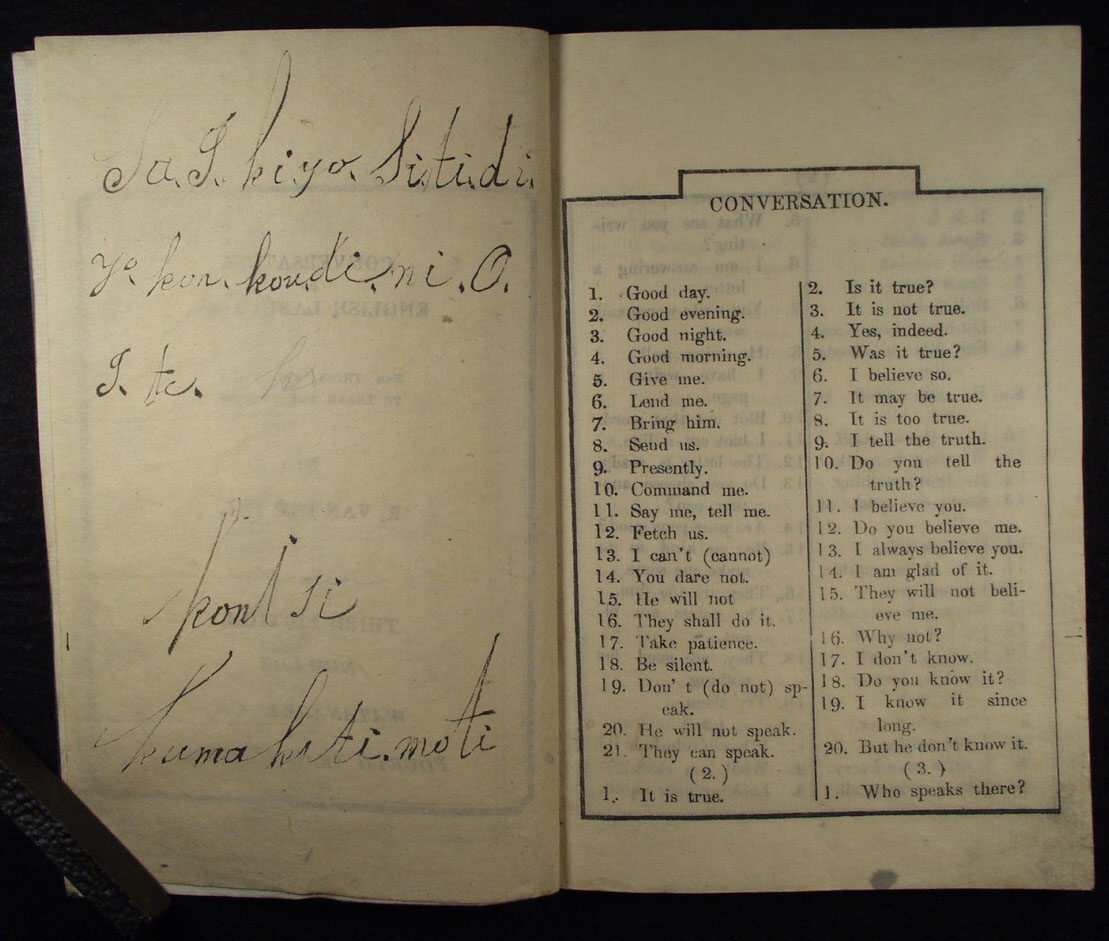 Si.ti.di.
I. te.
kon
si
kuma
moti
CONVERSATION.
1. Good day.
2. Good evening.
3. Good night.
4. Good morning.
5. Give me.
6. Lend me.
7. Bring him.
8. Send us.
9. Presently.
10. Command me.
11. Say me, tell me.
12. Fetch us.
13. I can't (cannot)
14. You dare not.
15. He will not
16. They shall do it.
17. Take patience.
18. Be silent.
19. Don' t (do not) sp-
eak.
20. He will not speak.
21. They can speak.
( 2. )
1. It is true.
2. Is it true?
3. It is not true.
4. Yes, indeed.
5. Was it true?
6. I believe so.
7. It may be true.
8. It is too true.
9. I tell the truth.
10. Do you tell the
truth?
11. I believe you.
12. Do you believe me.
13. I always believe you.
14. I am glad of it.
15. They will not beli-
eve me.
16. Why not?
17. I don't know.
18. Do you know it?
19. I know it since
long.
20. But he don't know it.
( 3. )
1. Who speaks there?